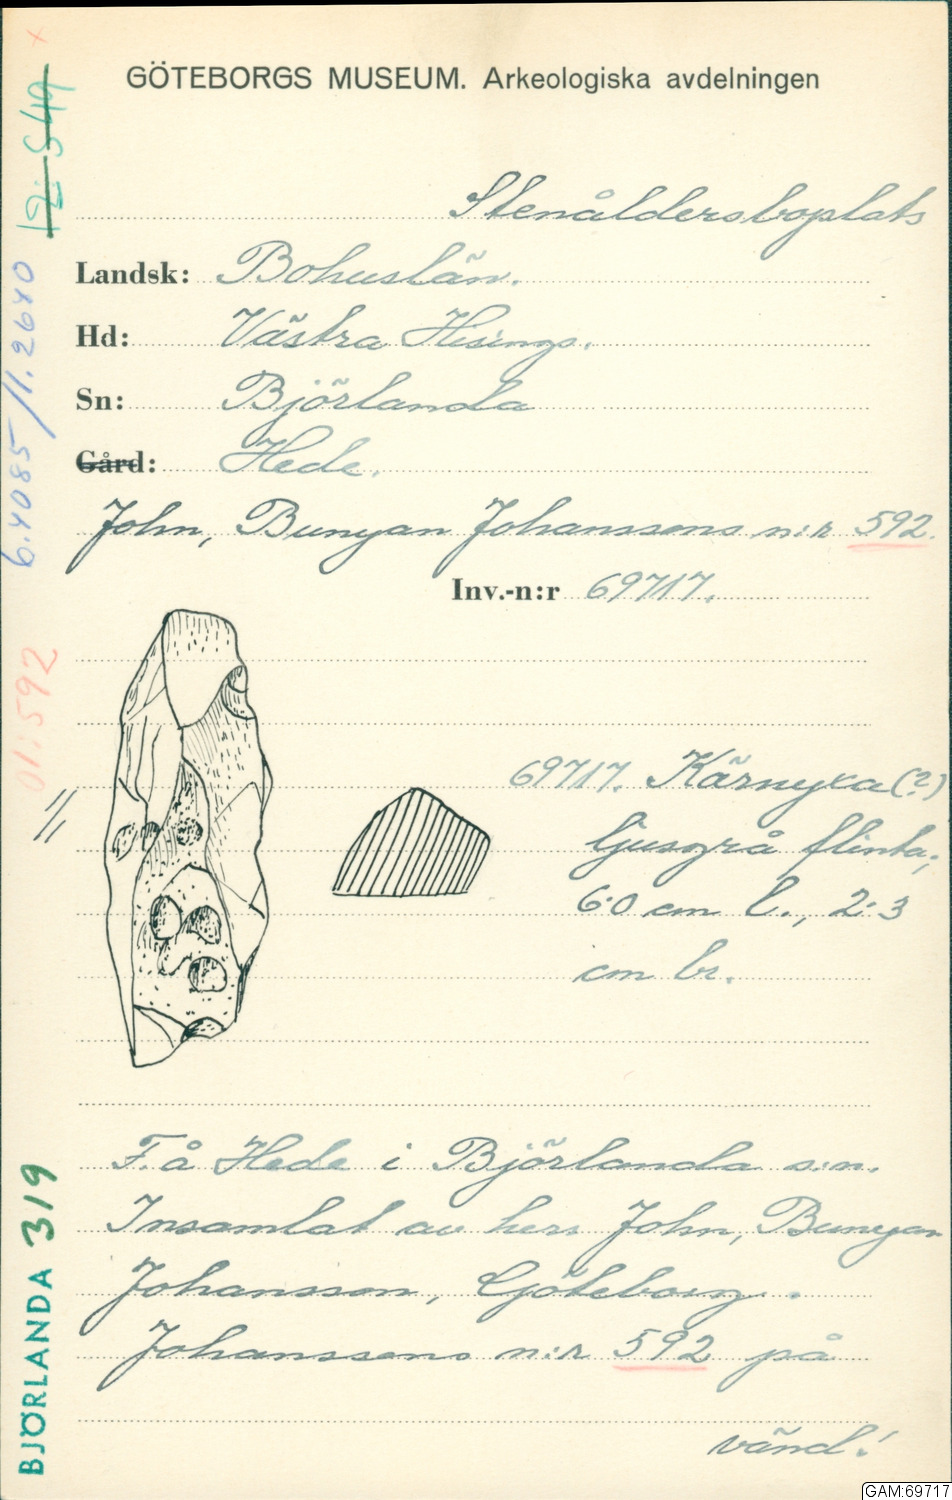 GÖTEBORGS MUSEUM. Arkeologiska avdelningen
Stenåldersboplats
Landsk: Bohuslän.
Hd: Västra Hisings.
Sn: Björlanda
Gård: Hede.
John, Bunyan Johanssons n:r 592.
Inv.-n:r 69717.
69717. Kärnyxa (?)
ljusgrå flinta;
6.0 cm l., 2.3
cm br.
F. å Hede i Björlanda s:n.
Insamlat av herr John, Bunyan
Johansson, Göteborg.
Johanssons n:r 592 på
vänd!
BJÖRLANDA 319
01:592
6.4085/1.2640
12:549
x
GAM:69717